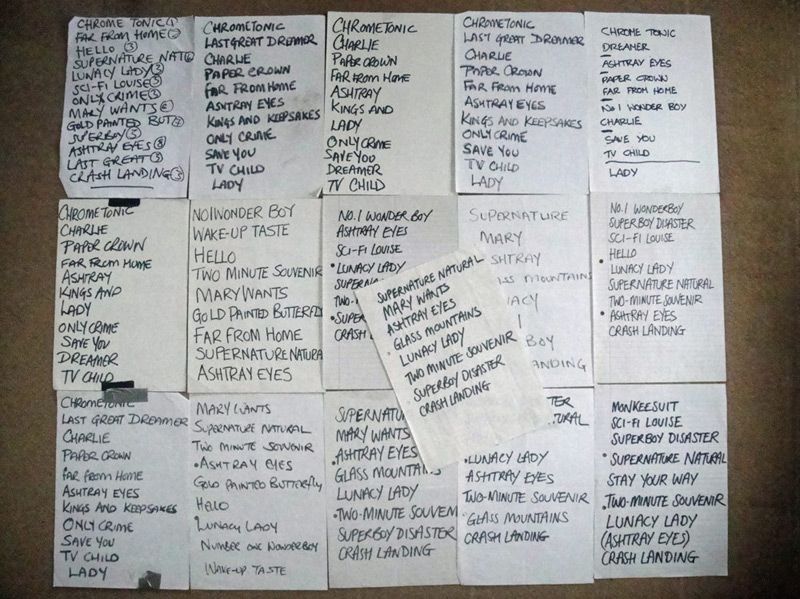 CHROME TONIC ①
FAR FROM HOME
HELLO ③
SUPERNATURE NAT
LUNACY LADY ③
SCI-FI LOUISE ③
ONLY CRIME ③
MARY WANTS
GOLD PAINTED BUT
SUPERBOY ⑤
ASHTRAY EYES ⑧
LAST GREAT ③
CRASH LANDING ③
CHROMETONIC
LAST GREAT DREAMER
CHARLIE
PAPER CROWN
FAR FROM HOME
ASHTRAY EYES
KINGS AND KEEPSAKES
ONLY CRIME
SAVE YOU
TV CHILD
LADY
CHROMETONIC
CHARLIE
PAPER CROWN
FAR FROM HOME
ASHTRAY
KINGS AND
LADY
ONLY CRIME
SAVE YOU
DREAMER
TV CHILD
CHROMETONIC
LAST GREAT DREAMER
CHARLIE
PAPER CROWN
FAR FROM HOME
ASHTRAY EYES
KINGS AND KEEPSAKES
ONLY CRIME
SAVE YOU
TV CHILD
LADY
CHROME TONIC
DREAMER
ASHTRAY EYES
PAPER CROWN
FAR FROM HOME
No 1 WONDER BOY
CHARLIE
SAVE YOU
TV CHILD
LADY
CHROMETONIC
CHARLIE
PAPER CROWN
FAR FROM HOME
ASHTRAY
KINGS AND
LADY
ONLY CRIME
SAVE YOU
DREAMER
TV CHILD
NO1WONDER BOY
WAKE-UP TASTE
HELLO
TWO MINUTE SOUVENIR
MARY WANTS
GOLD PAINTED BUTTERFLY
FAR FROM HOME
SUPERNATURE NATURA
ASHTRAY EYES
NO.1 WONDERBOY
ASHTRAY EYES
SCI-FI LOUISE
• LUNACY LADY
SUPERNA
TWO-MIN
• SUPE
CRASH L
SUPERNATURE NATURAL
MARY WANTS
ASHTRAY EYES
GLASS MOUNTAINS
LUNACY LADY
TWO MINUTE SOUVENIR
SUPERBOY DISASTER
CRASH LANDING
SUPERNATURE
MARY
SHTRAY
LASS MOUNTAINS
ACY
BOY
ANDING
NO.1 WONDERBOY
SUPERBOY DISASTER
SCI-FI LOUISE
HELLO
• LUNACY LADY
SUPERNATURE NATURAL
TWO-MINUTE SOUVENIR
• ASHTRAY EYES
CRASH LANDING
CHROMETONIC
LAST GREAT DREAMER
CHARLIE
PAPER CROWN
FAR FROM HOME
ASHTRAY EYES
KINGS AND KEEPSAKES
ONLY CRIME
SAVE YOU
TV CHILD
LADY
MARY WANTS
SUPERNATURE NATURAL
TWO MINUTE SOUVENIR
• ASHTRAY EYES
GOLD PAINTED BUTTERFLY
HELLO
• LUNACY LADY
NUMBER ONE WONDERBOY
WAKE-UP TASTE
SUPERNATU
MARY WANTS
• ASHTRAY EYES
GLASS MOUNTAI
LUNACY LADY
• TWO-MINUTE SOUVEN
SUPERBOY DISASTER
CRASH LANDING
TER
URAL
• LUNACY LADY
ASHTRAY EYES
TWO-MINUTE SOUVENIR
• GLASS MOUNTAINS
CRASH LANDING
MONKEESUIT
SCI-FI LOUISE
SUPERBOY DISASTER
• SUPERNATURE NATURAL
STAY YOUR WAY
• TWO-MINUTE SOUVENIR
LUNACY LADY
(ASHTRAY EYES)
CRASH LANDING